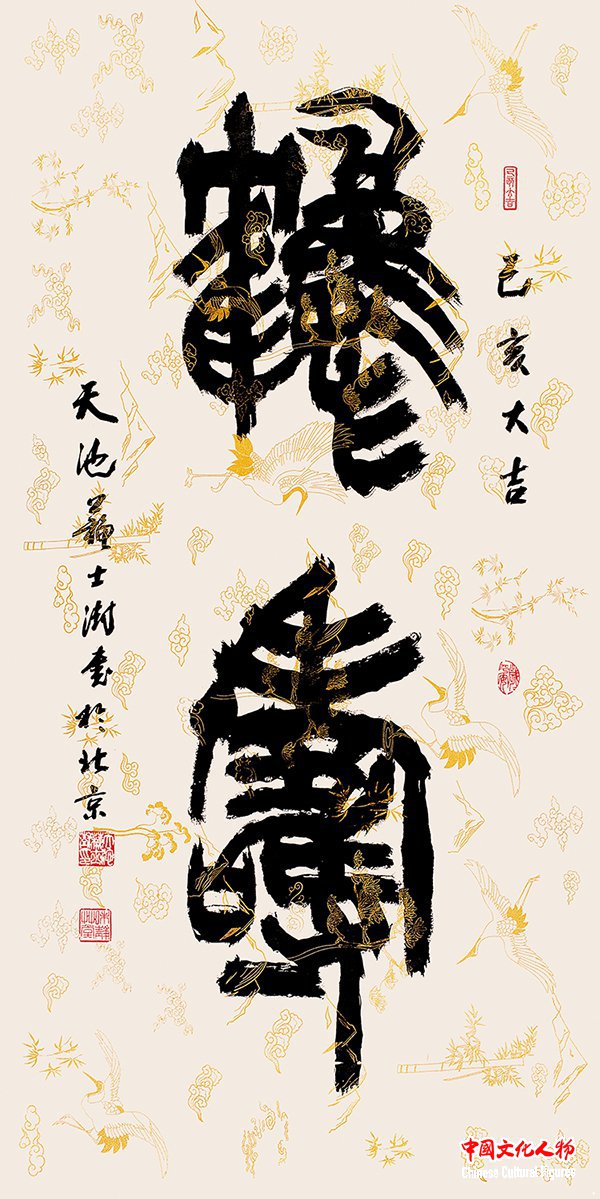 己亥大吉
壽
天池蘇士澍書於北京
中國文化人物
Chinese Cultural Figures